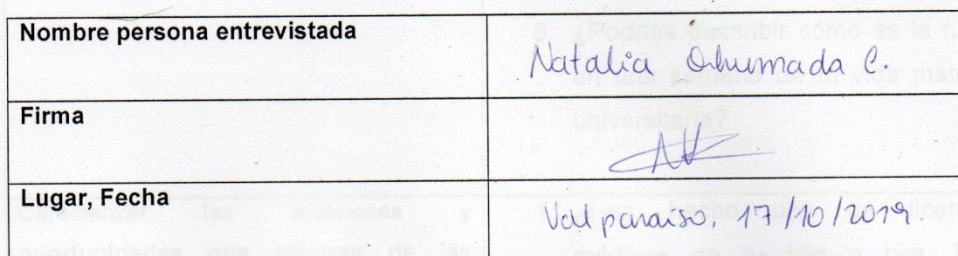 Nombre persona entrevistada
Natalia Ahumada C.
Firma
Lugar, Fecha
Valparaíso, 17/10/2019.